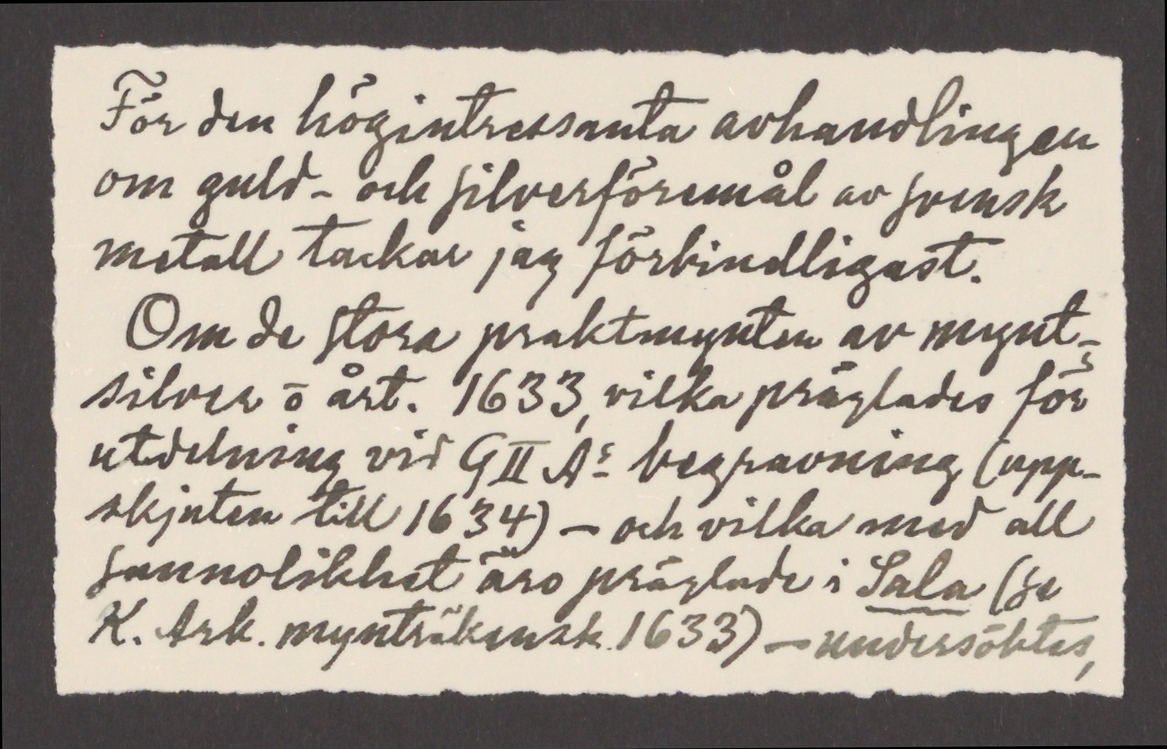 För den högintressanta avhandlingen
om guld- och silverföremål av svensk
metall tackar jag förbindligast.
Om de stora praktmynten av mynt-
silver o årt. 1633, vilka präglades för
utdelning vid G II As begravning (upp-
skjuten till 1634) – och vilka med all
sannolikhet äro präglade i Sala (se
K. Ark. mynträkensk. 1633) – undersöktes,